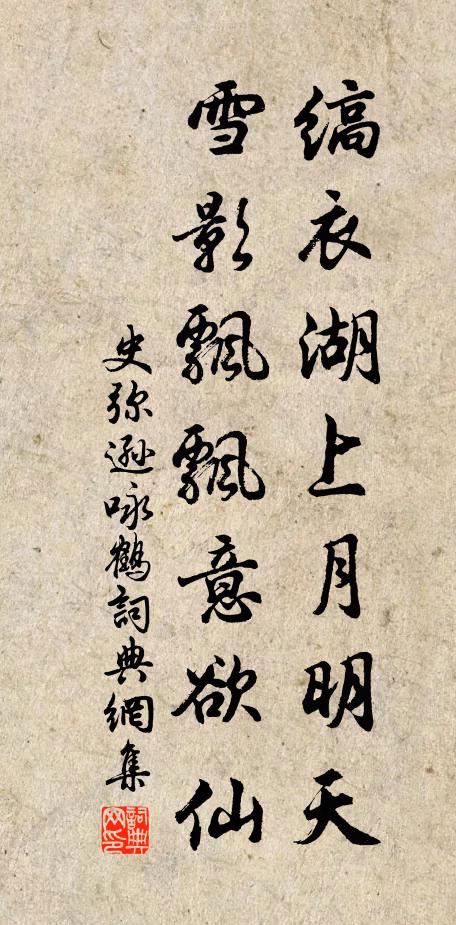 缟衣湖上月明天
雪影飘飘意欲仙
史弥逊咏鹤詞典網集
詞典网印